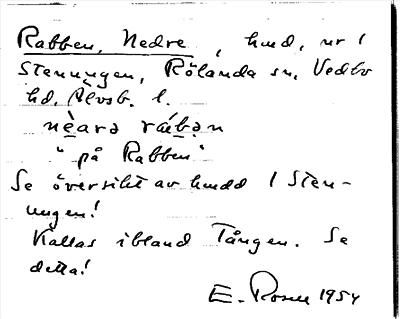 Rabben, Nedre, hmd, nr 1
Stenungen, Rölanda sn, Vedbo
hd, Älvsb. l.
nèarə rábən
"på Rabben"
Se översikt av hmdd i Sten-
ungen!
Kallas ibland Tången. Se
detta!
E. Rosell 1954